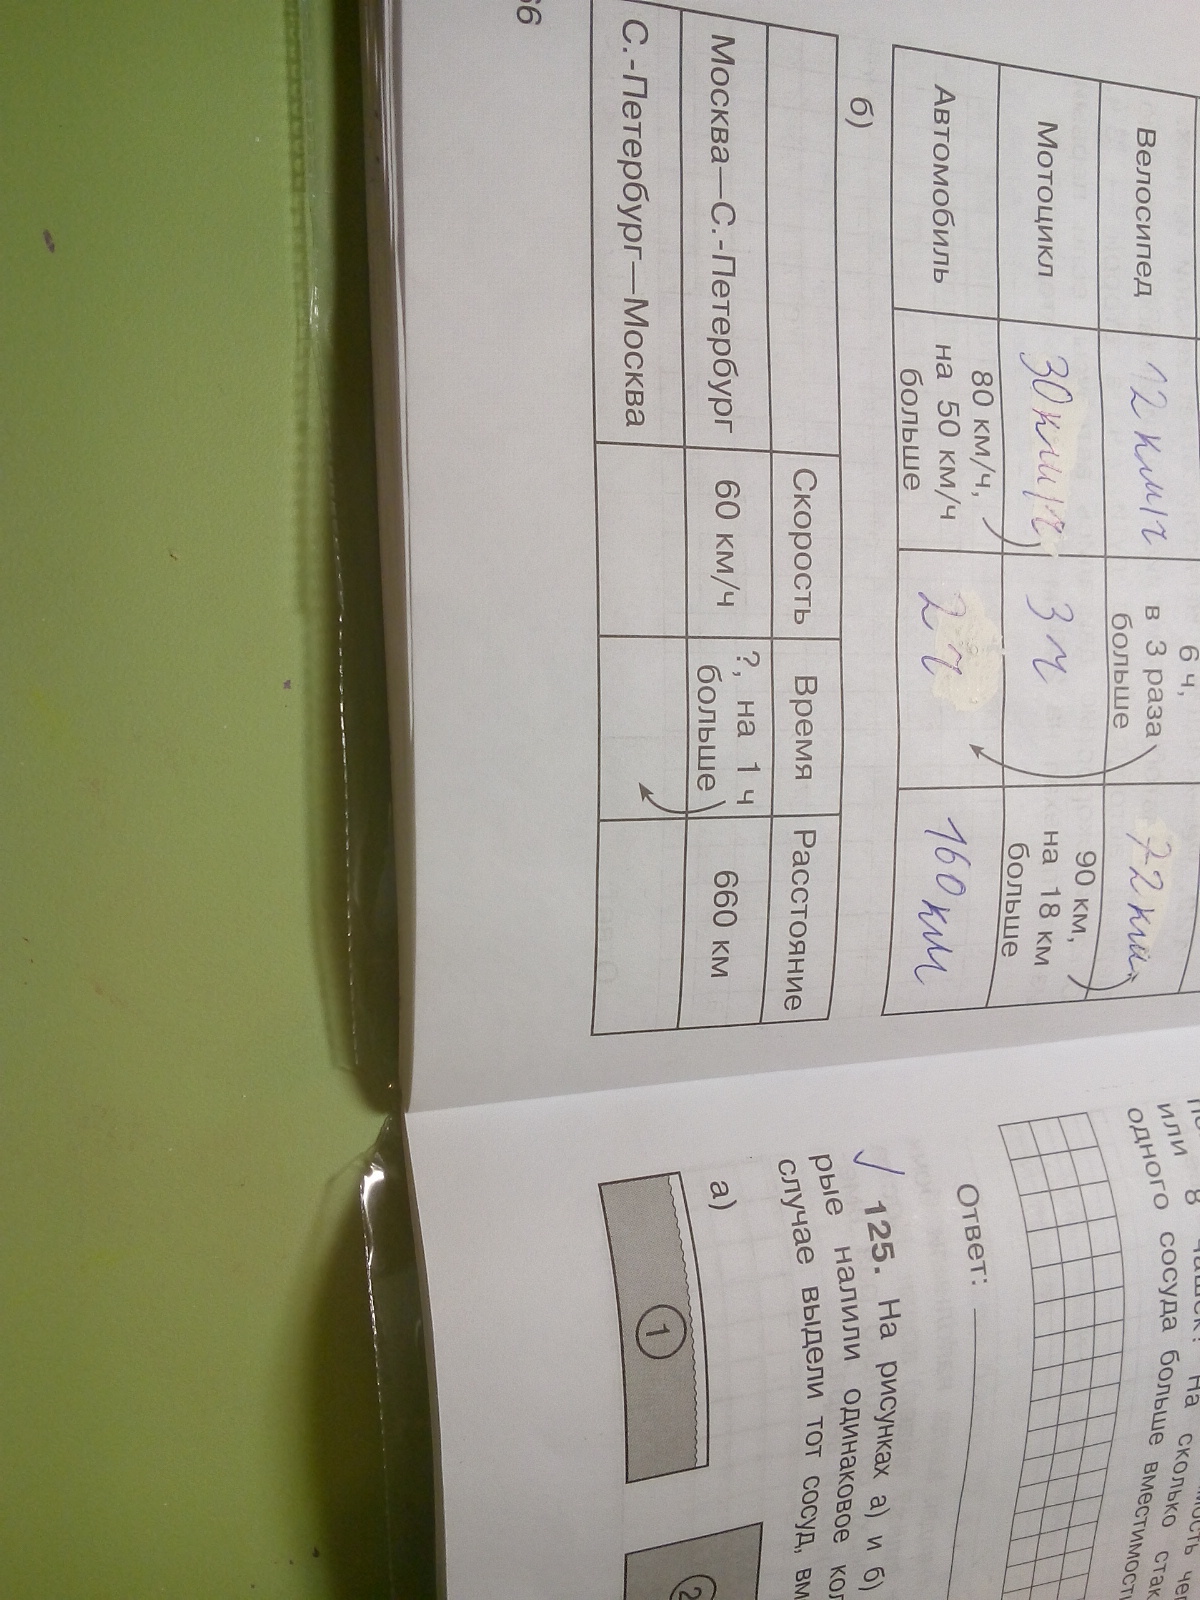 Велосипед 12 км/ч 6 ч, в 3 раза больше 72 км
Мотоцикл 30 км/ч 3 ч 90 км, на 18 км больше
Автомобиль 80 км/ч, на 50 км/ч больше 2 ч 160 км
б)
Скорость Время Расстояние
Москва—С.-Петербург 60 км/ч ?, на 1 ч больше 660 км
С.-Петербург—Москва
66
или 8 чашек? На сколько
одного сосуда больше
Ответ:
√ 125. На рисунках а) и б)
рые налили одинаковое
случае выдели тот сосуд,
а)
1
2